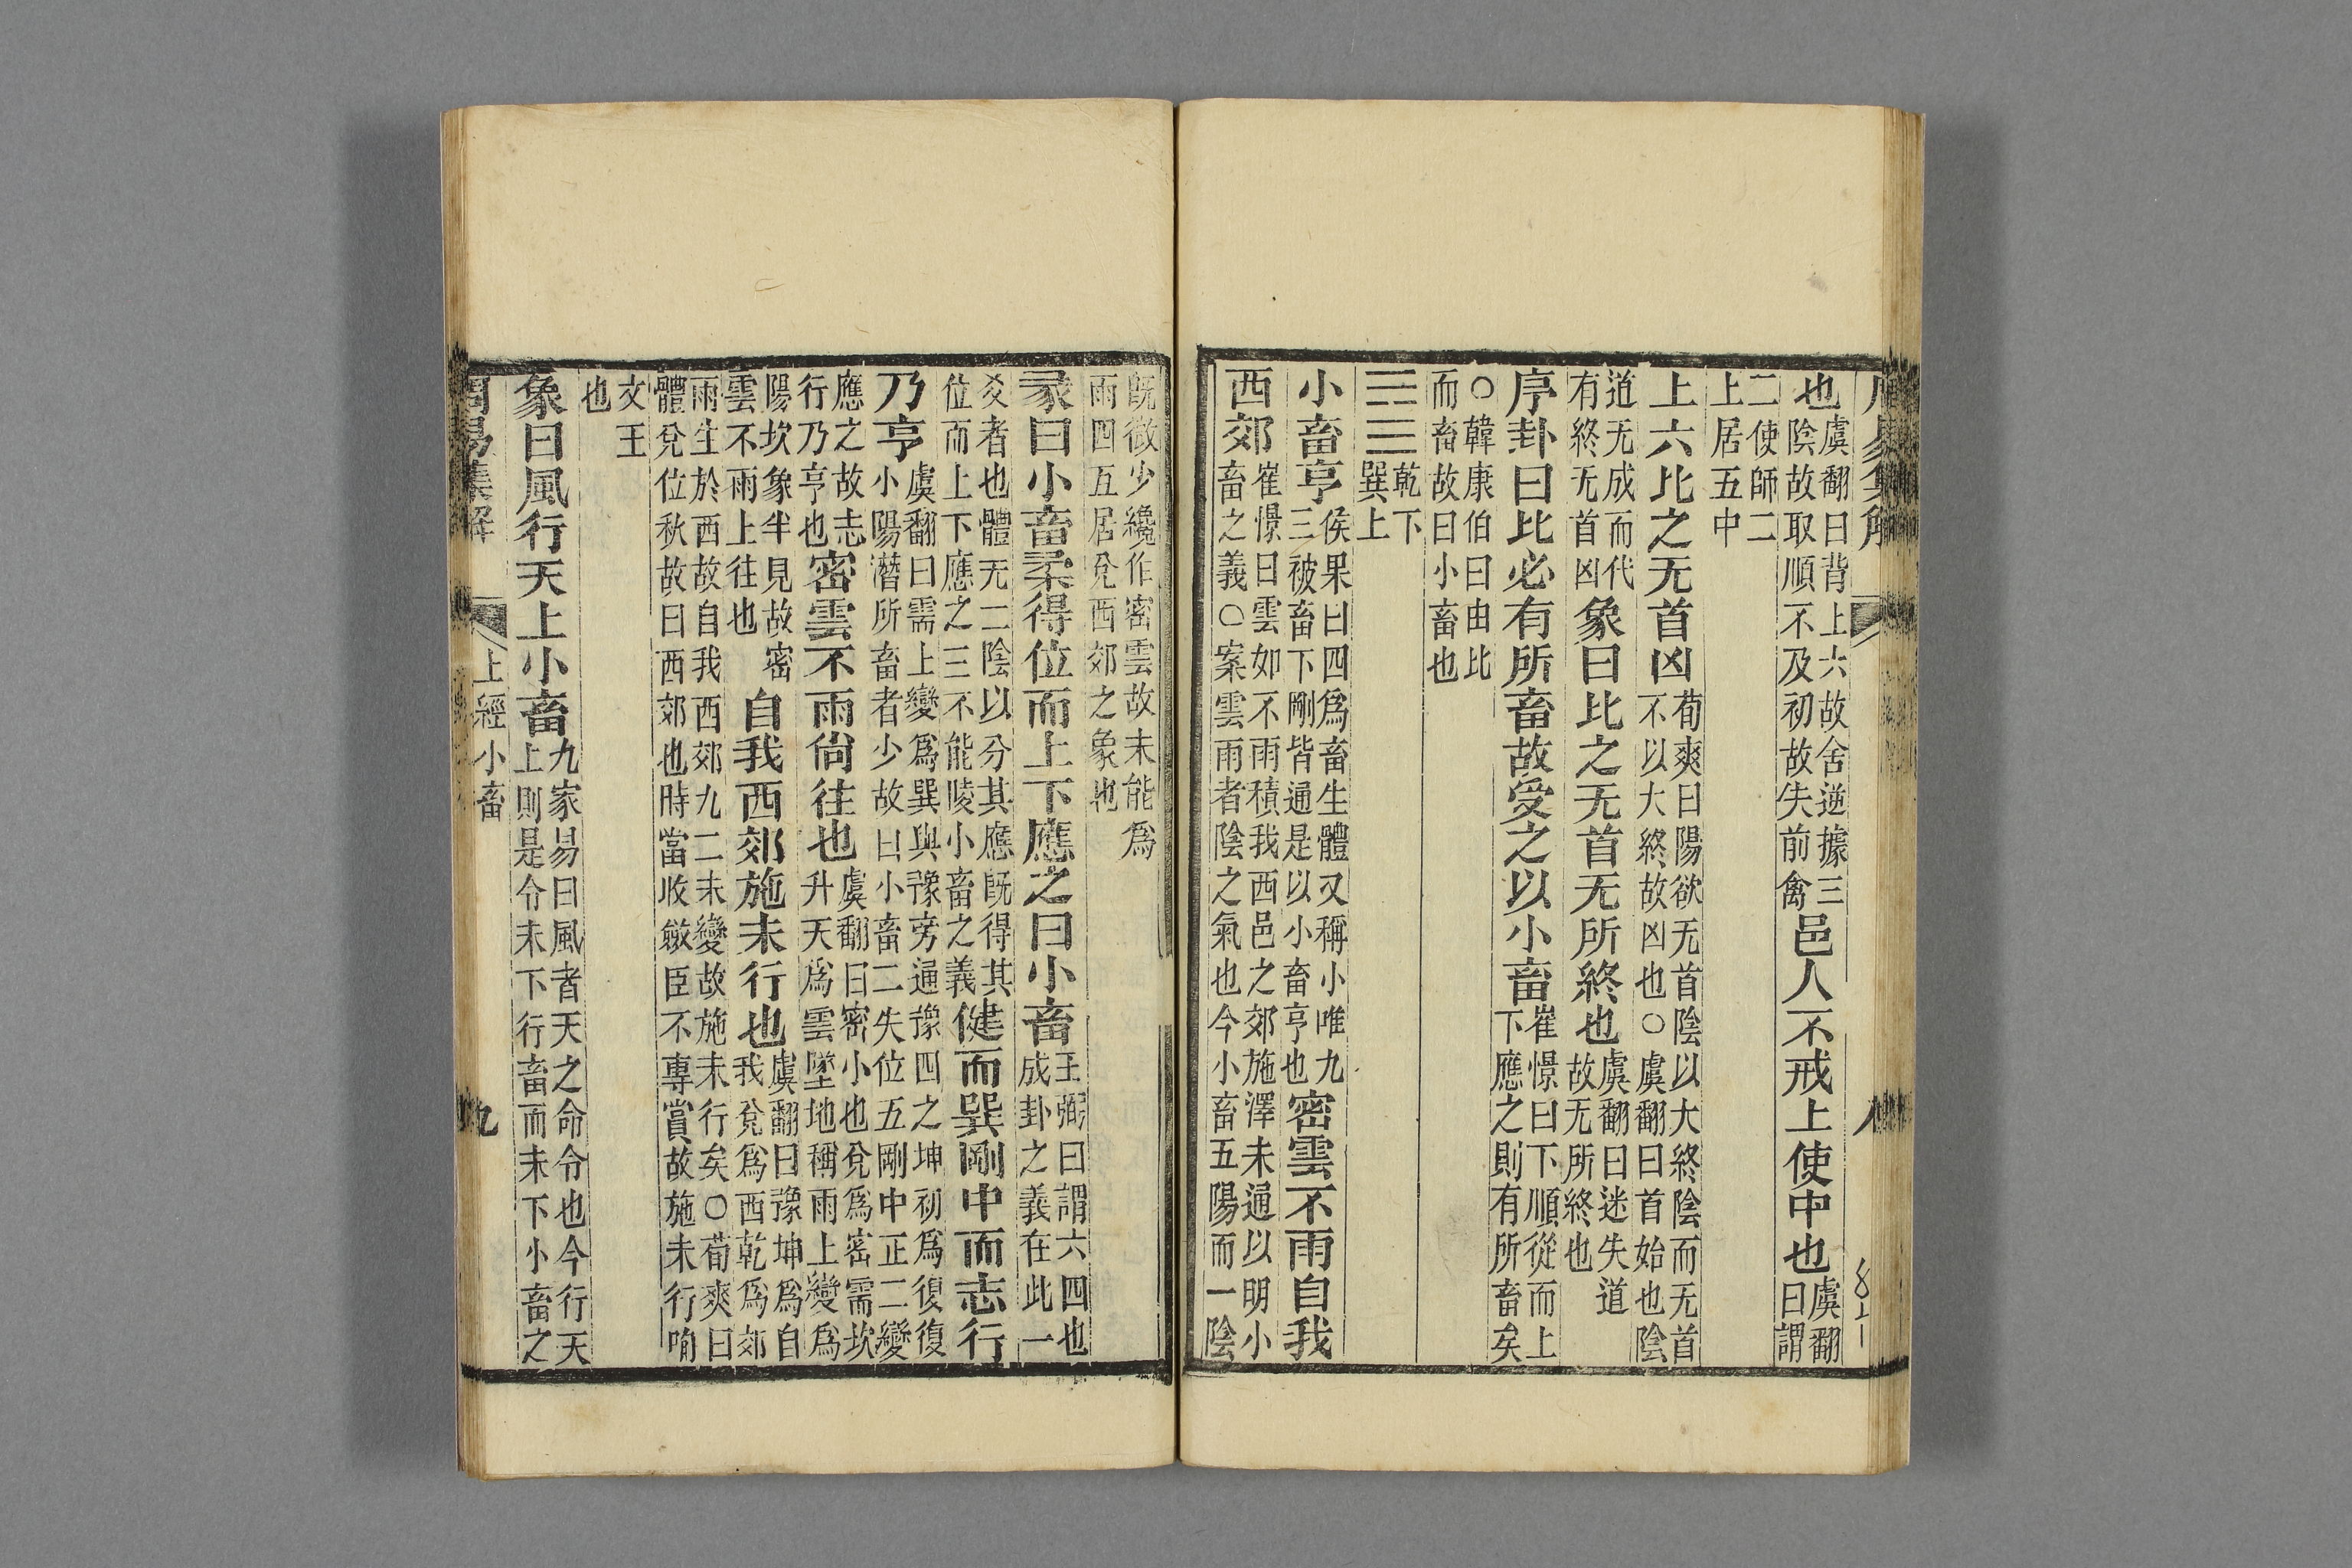 周易集解
八
也虞翻曰背上六故舍逆據三
陰故取順不及初故失前禽邑人不戒上使中也虞翻
曰謂
二使師二
上居五中
上六比之无首凶荀爽曰陽欲无首陰以大終陰而无首
不以大終故凶也○虞翻曰首始也陰
道无成而代
有終无首凶象曰比之无首无所終也虞翻曰迷失道
故无所終也
序卦曰比必有所畜故受之以小畜崔憬曰下順從而上
下應之則有所畜矣
○韓康伯曰由比
而畜故曰小畜也
乾下
巽上
小畜亨侯果曰四爲畜生體又稱小唯九
三被畜下剛皆通是以小畜亨也密雲不雨自我
西郊崔憬曰雲如不雨積我西邑之郊施澤未通以明小
畜之義○案雲雨者陰之氣也今小畜五陽而一陰
旣微少纔作密雲故未能爲
雨四五居兌西郊之象也
彖曰小畜柔得位而上下應之曰小畜王弼曰謂六四也
成卦之義在此一
爻者也體无二陰以分其應旣得其
位而上下應之三不能陵小畜之義健而巽剛中而志行
乃亨虞翻曰需上變爲巽與豫旁通豫四之坤初爲復復
小陽潛所畜者少故曰小畜二失位五剛中正二變
應之故志
行乃亨也密雲不雨尙往也虞翻曰密小也兌爲密需坎
升天爲雲墜地稱雨上變爲
陽坎象半見故密
雲不雨上往也自我西郊施未行也虞翻曰豫坤爲自
我兌爲西乾爲郊
雨生於西故自我西郊九二未變故施未行矣○荀爽曰
體兌位秋故曰西郊也時當收斂臣不專賞故施未行喻
文王
也
象曰風行天上小畜九家易曰風者天之命令也今行天
上則是令未下行畜而未下小畜之
周易集解
上經小畜
九